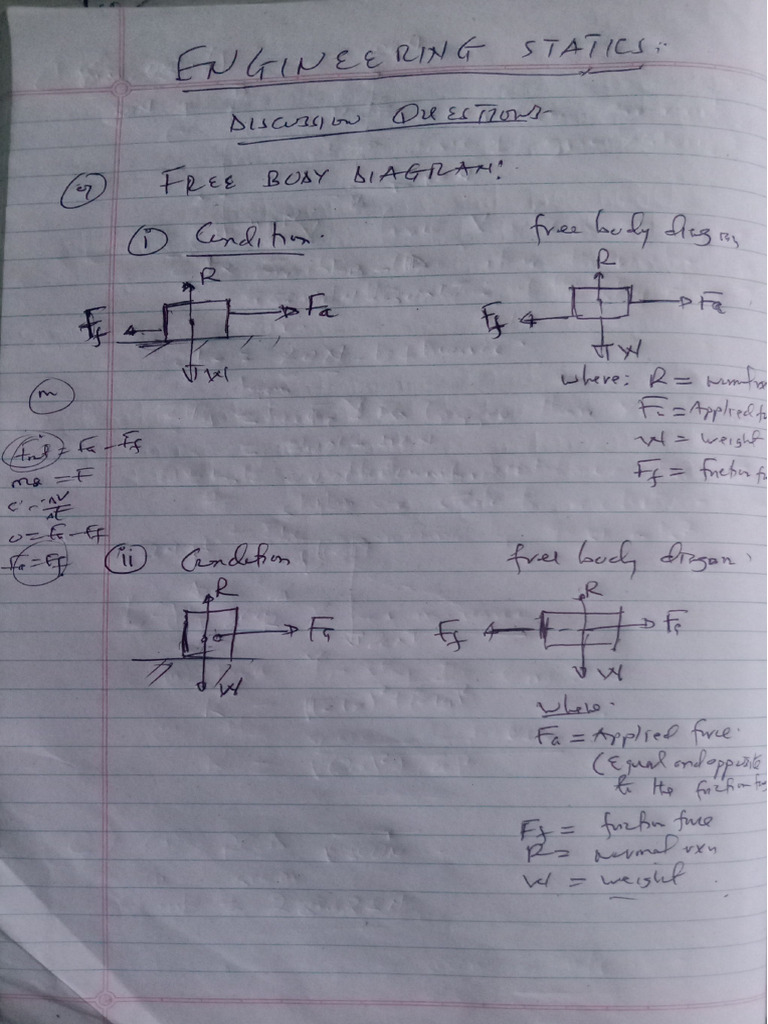 ENGINEERING STATICS:
DISCUSSION QUESTIONS
FREE BODY DIAGRAM:
i Condition.
free body
R
Ff
Fa
W
R
Ff
Fa
W
where: R =
Fa = Applied
W = weight
Ff = friction
m
= Fa - Ff
ma = F
0 = Fa - Ff
Fa = Ff
ii Condition
free body diagram.
R
Fa
W
R
Ff
Fa
W
where.
Fa = Applied force.
(Equal and opposite
to the friction
Ff = friction force
R = normal rxn
W = weight.